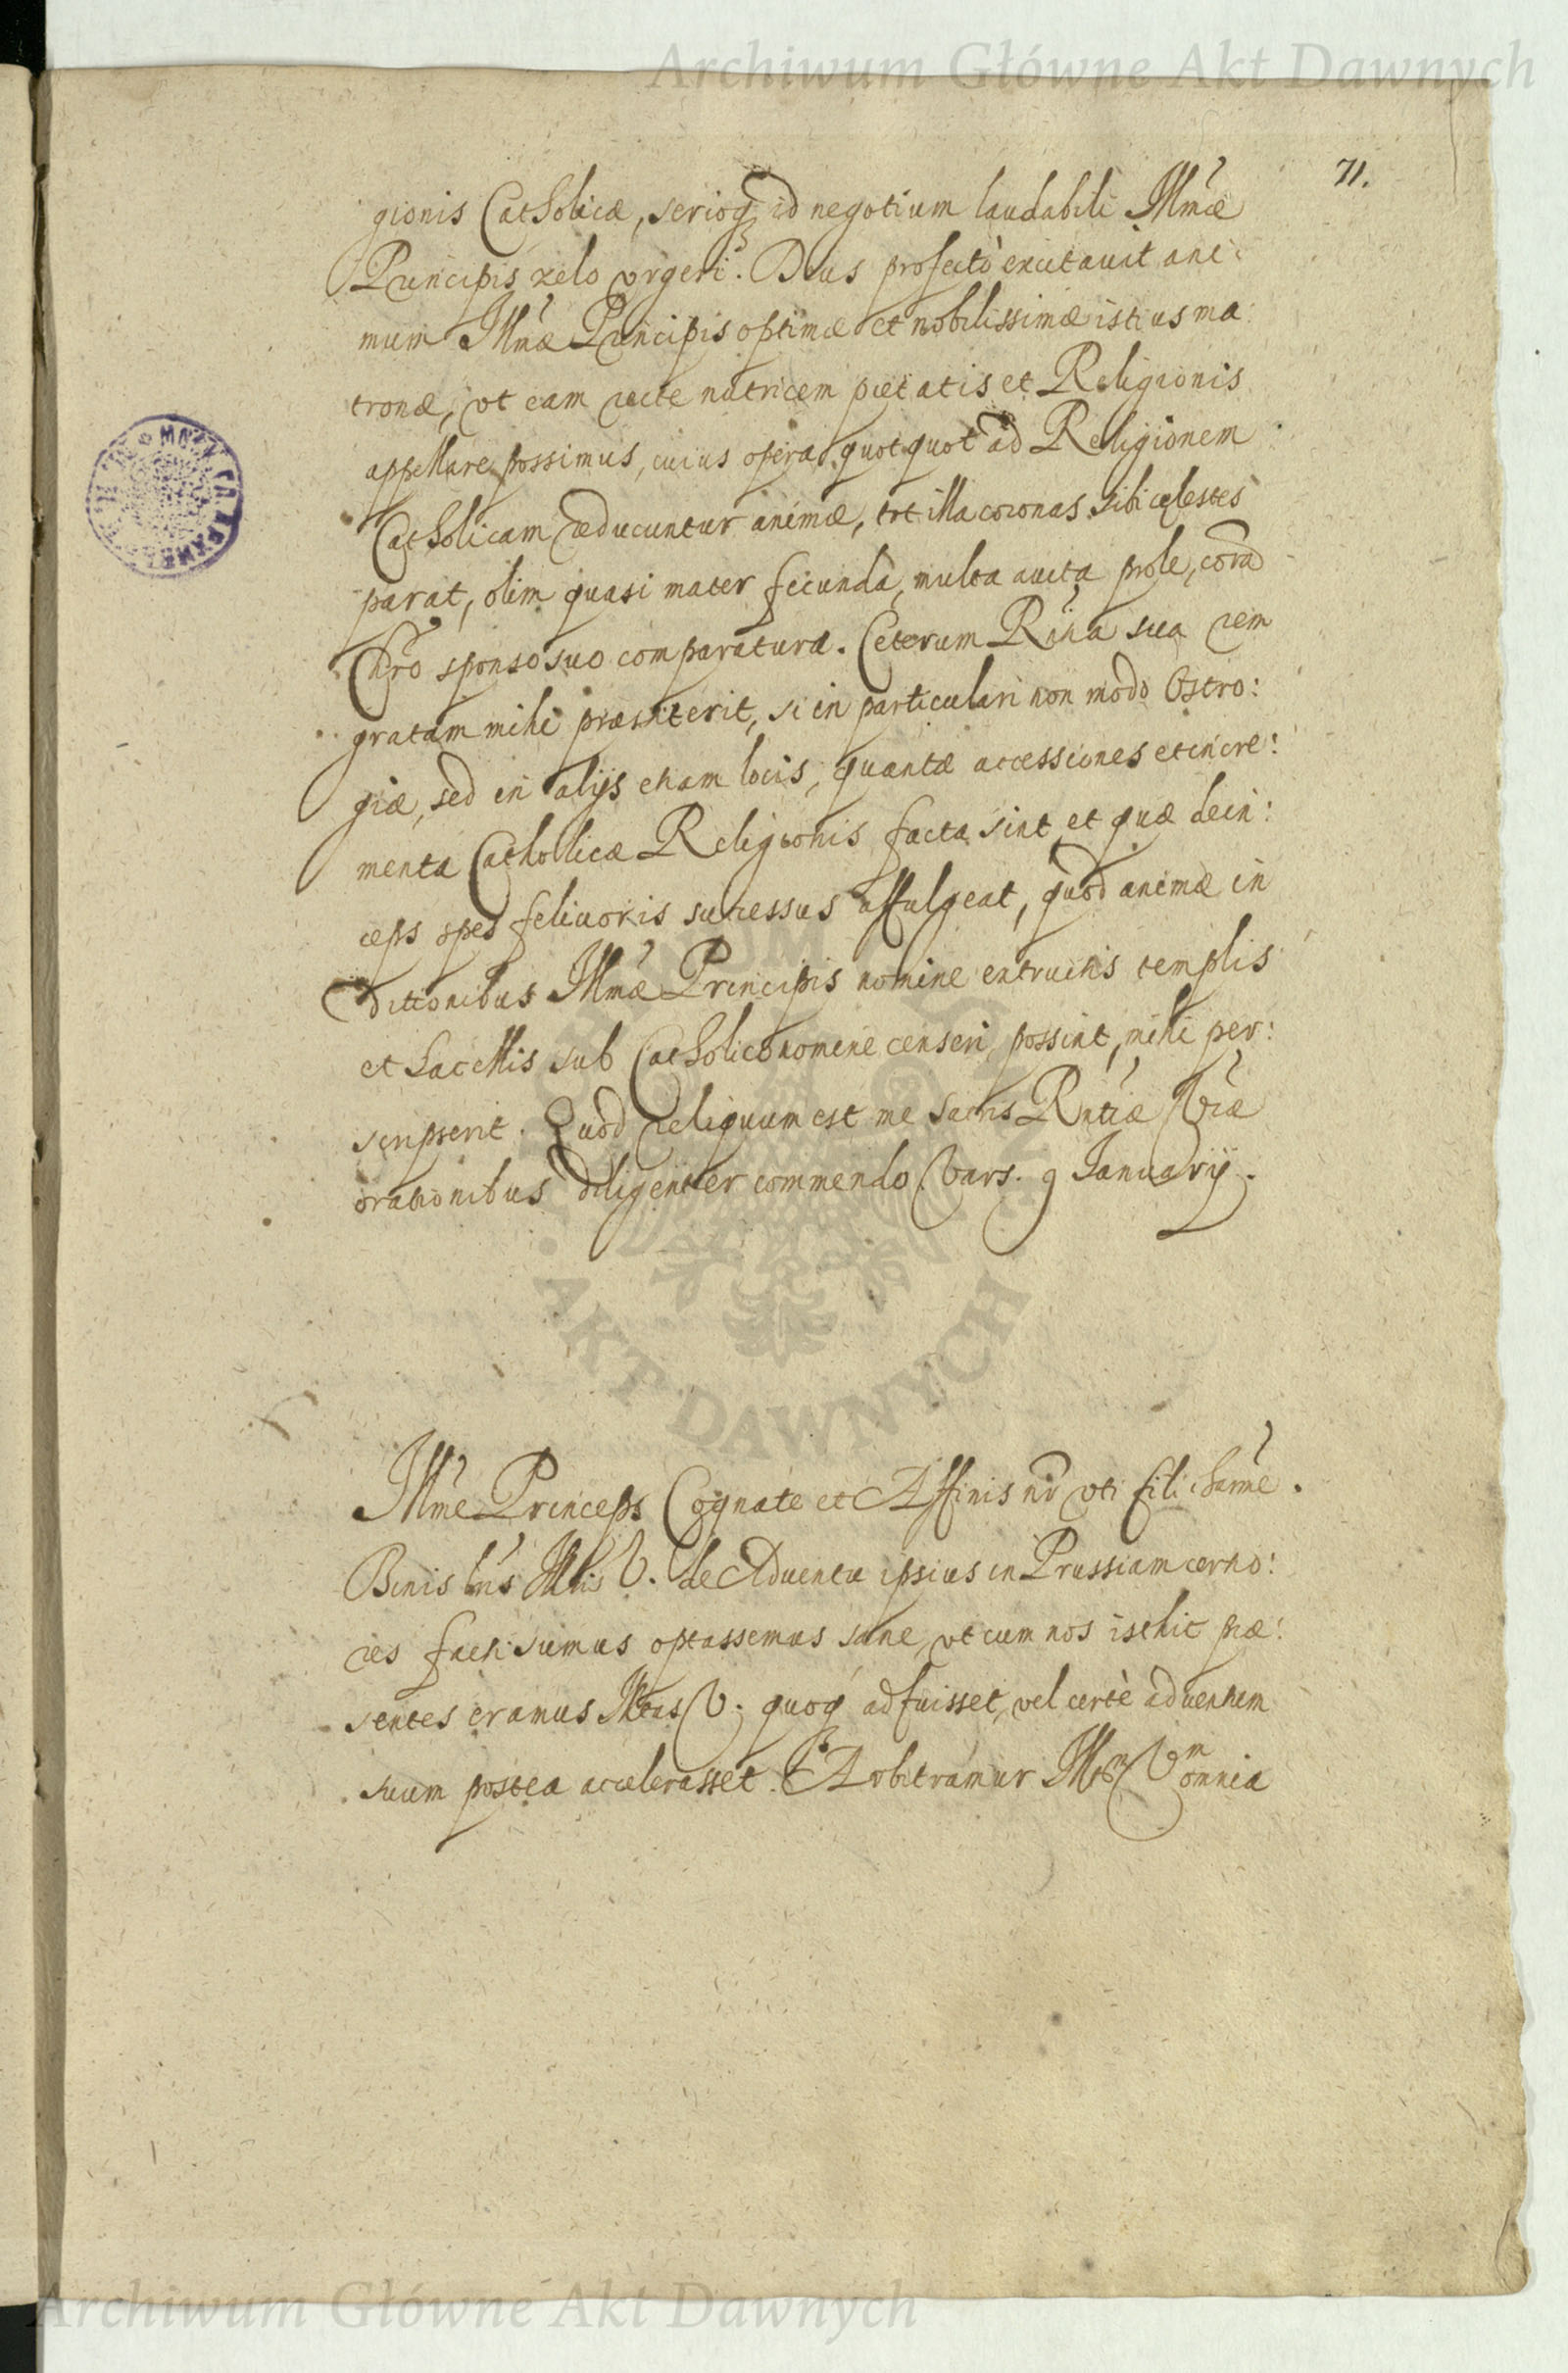 Archiwum Główne Akt Dawnych
71.
gionis Catholicæ, serioq́ꝫ id negotium laudabili Illmæ
Principis zelo vrgeri. Deus profectò excitauit ani:
mum Illmæ Principis optimæ et nobilissimæ istius ma:
tronæ, vt eam recte nutricem pietatis et Religionis
appellare possimus, cuius opera quotquot ad Religionem
Catholicam reducuntur animæ, tot illa coronas sibi cęlestes
parat, olim quasi mater fecunda, multa aucta prole, corã
Chro sponso suo comparatura. Ceterum Rtia sua rem
gratam mihi præstiterit, si in particulari non modo Ostro:
giæ, sed in alijs etiam locis, quantæ accessiones et incre:
menta Catholicæ Religionis facta sint et quæ dein:
ceps spes felicioris successus affulgeat, quod animæ in
ditionibus Illmæ Principis nomine extructis templis
et Sacellis sub Catholico nomine censeri possint, mihi per:
scripserit. Quod reliquum est me sacris Rntiæ Vræ
orationibus diligenter commendo. Vars. 9 Januarij.
Illme Princeps Cognate et Affinis nr vti fili charme.
Binis lris Illtis V. de Aduentu ipsius in Prussiam certio:
res facti sumus optassemus sane, vt cum nos isthic præ:
sentes eramus Illtas V. quoq́ꝫ adfuisset, vel certè aduentum
suum postea accelerasset. Arbitramur Illtem Vm omnia
ARCHIWUM GŁÓWNE · AKT DAWNYCH
Archiwum Główne Akt Dawnych